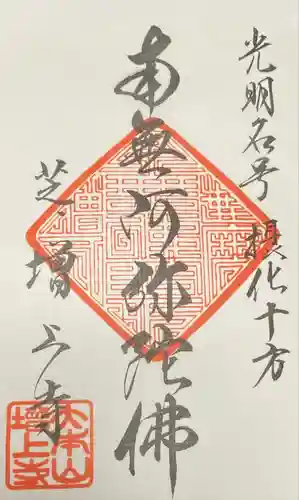 光明名号摂化十方
南無阿弥陀佛
芝増上寺
大本山
増上寺